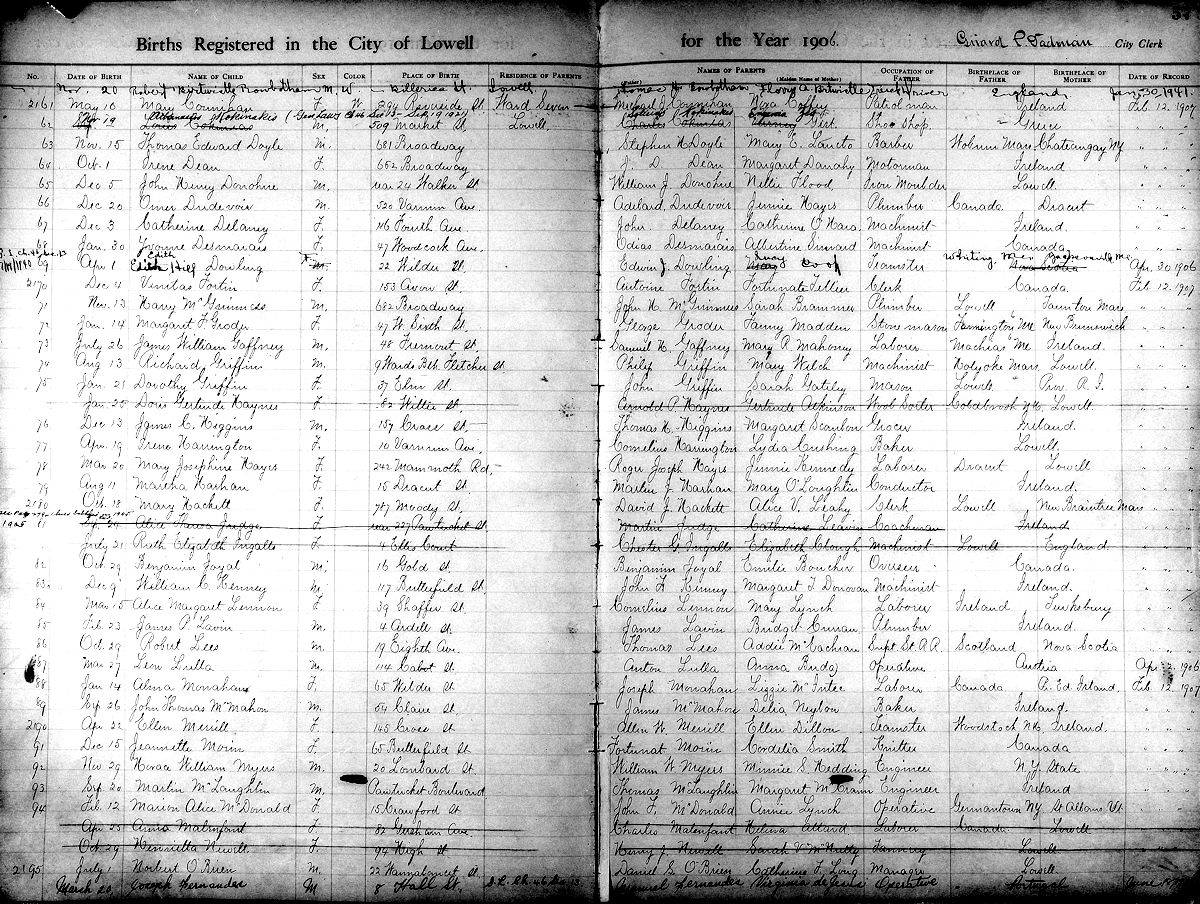 57
Births Registered in the City of Lowell for the Year 1906. Girard P. Dadman City Clerk
No. Date of Birth Name of Child Sex Color Place of Birth Residence of Parents Names of Parents (Father) (Maiden Name of Mother) Occupation of Father Birthplace of Father Birthplace of Mother Date of Record
Nov. 20 Robert M. W. Billerica St. Lowell. England Jan. 30 1941.
2161 May 10 Mary Counihan F. W. 294 Riverside St. Ward Seven Michael J. Counihan Nora Coffey Patrolman Ireland Feb. 12. 1907
62 19 m. 509 Market St. Lowell. Shoe Shop. Greece
63 Nov. 15 Thomas Edward Doyle m. 681 Broadway Stephen H. Doyle Mary E. Barber Woburn Mass Chateaugay NY
64 Oct. 1 Irene Dean F. 652 Broadway J. D. Dean Margaret Danahy Motorman Ireland
65 Dec 5 John Henry Donohue m. rear 24 Walker St. William J. Donohue Nellie Flood Iron Moulder Lowell
66 Dec 20 Omer Dudevoir m. 520 Varnum Ave. Adelard Dudevoir Jennie Hayes Plumber Canada Dracut
67 Dec 3 Catherine Delaney F. 146 Fourth Ave. John Delaney Catherine O'Hara Machinist Ireland.
68 Jan. 30 Yvonne Desmarais F. 47 Woodcock Ave. Desmarais Albertine Machinist Canada
69 Apr. 1 Edith Dowling F. 22 Wilder St. Edwin J. Dowling Teamster Nova Scotia Apr. 30 1906
2170 Dec 4 Fortin F. 153 Avon St. Antoine Fortin Tellier Clerk Canada. Feb. 12. 1907
71 Nov. 13 Harry McGuinness m. 682 Broadway John H. McGuinness Sarah Plumber Lowell Taunton Mass
72 Jan. 14 Margaret F. Groder F. 47 W. Sixth St. George Groder Fanny Madden Stone mason Farmington Me New Brunswick
73 July 26 James William Gaffney m. 48 Fremont St. Samuel H. Gaffney Mary R. Mahoney Laborer Machias Me Ireland.
74 Aug 13 Richard Griffin m. 9 Wards Blk. Fletcher St. Philip Griffin Mary Welch Machinist Holyoke Mass Lowell.
75 Jan. 21 Dorothy Griffin F. 57 Elm St. John Griffin Sarah Gately Mason Lowell Prov. R.I.
Jan. 25 Doris Gertrude Haynes F. 82 Willie St. Arnold P. Haynes Gertrude Atkinson Wool Sorter Colebrook N.H. Lowell.
76 Dec 13 James C. Higgins m. 157 Cross St. Thomas H. Higgins Margaret Scanlon Grocer Ireland.
77 Apr. 19 Irene Harrington F. 10 Varnum Ave. Cornelius Harrington Lydia Cushing Baker Lowell.
78 Mar. 20 Mary Josephine Hayes F. 242 Mammoth Rd. Roger Joseph Hayes Jennie Kennedy Laborer Dracut Lowell
79 Aug 11 Martha Harhan F. 15 Dracut St. Martin J. Harhan Mary O'Loughlin Conductor Ireland.
2180 Oct. 18 Mary Hackett F. 747 Moody St. David J. Hackett Alice V. Leahy Clerk Lowell New Braintree Mass
1905 81 Alice Judge F. rear 227 Pawtucket St. Martin Judge Catherine Coachman Ireland
July 21 Ruth Elizabeth Ingalls F. 4 Ellis Court Chester G. Ingalls Elizabeth Clough Machinist Lowell England.
82 Oct. 29 Benjamin Joyal m. 16 Gold St. Benjamin Joyal Emilie Boucher Overseer Canada.
83 Dec. 9 William C. Kenney m. 117 Butterfield St. John F. Kenney Margaret T. Donovan Machinist Ireland.
84 Mar. 15 Alice Margaret Lennon F. 39 Shaffer St. Cornelius Lennon Mary Lynch Laborer Ireland Tewksbury
85 Feb. 23 James P. Lavin m. 4 Ardell St. James Lavin Bridget Plumber Ireland.
86 Oct. 29 Robert Lees m. 19 Eighth Ave. Thomas Lees Addie McEachean Supt. St. R.R. Scotland Nova Scotia
87 Mar. 27 Leon Lulla m. 114 Cabot St. Anton Lulla Anna Operative Austria Apr. 2. 1906
88 Jan. 14 Alma Monahan F. 65 Wilder St. Joseph Monahan Lizzie McIntee Laborer Canada P. Ed Island. Feb. 12. 1907
89 Sep. 26 John Thomas McMahon m. 54 Claire St. James McMahon Delia Neylon Baker Ireland.
2190 Apr. 22 Ellen Merrill F. 145 Cross St. Allen W. Merrill Ellen Dillon Teamster Woodstock N.H. Ireland.
91 Dec 15 Jeannette Morin F. 65 Butterfield St. Fortunat Morin Cordelia Smith Canada
92 Nov. 29 Horace William Myers m. 20 Lombard St. William W. Myers Minnie S. Redding Engineer N.Y. State
93 Sep. 20 Martin McLaughlin m. Pawtucket Boulevard Thomas McLaughlin Margaret McCrann Engineer Ireland
94 Feb. 12 Marion Alice McDonald F. 15 Crawford St. John F. McDonald Annie Lynch Operative Germantown NY St Albans Vt
Apr. 25 Anna Malenfant F. 82 Gershom Ave. Charles Malenfant Allard Laborer Canada Lowell
Oct. 29 Henrietta Newell F. 94 High St. Henry J. Newell Sarah V. McNulty Lowell
2195 July 1 Norbert O'Brien m. 22 Wannalancit St. Daniel S. O'Brien Catherine F. Long Manager Lowell.
March 20 Joseph Fernandes M 8 Hall St. Manuel Fernandes Virginia de Jesus Operative Portugal